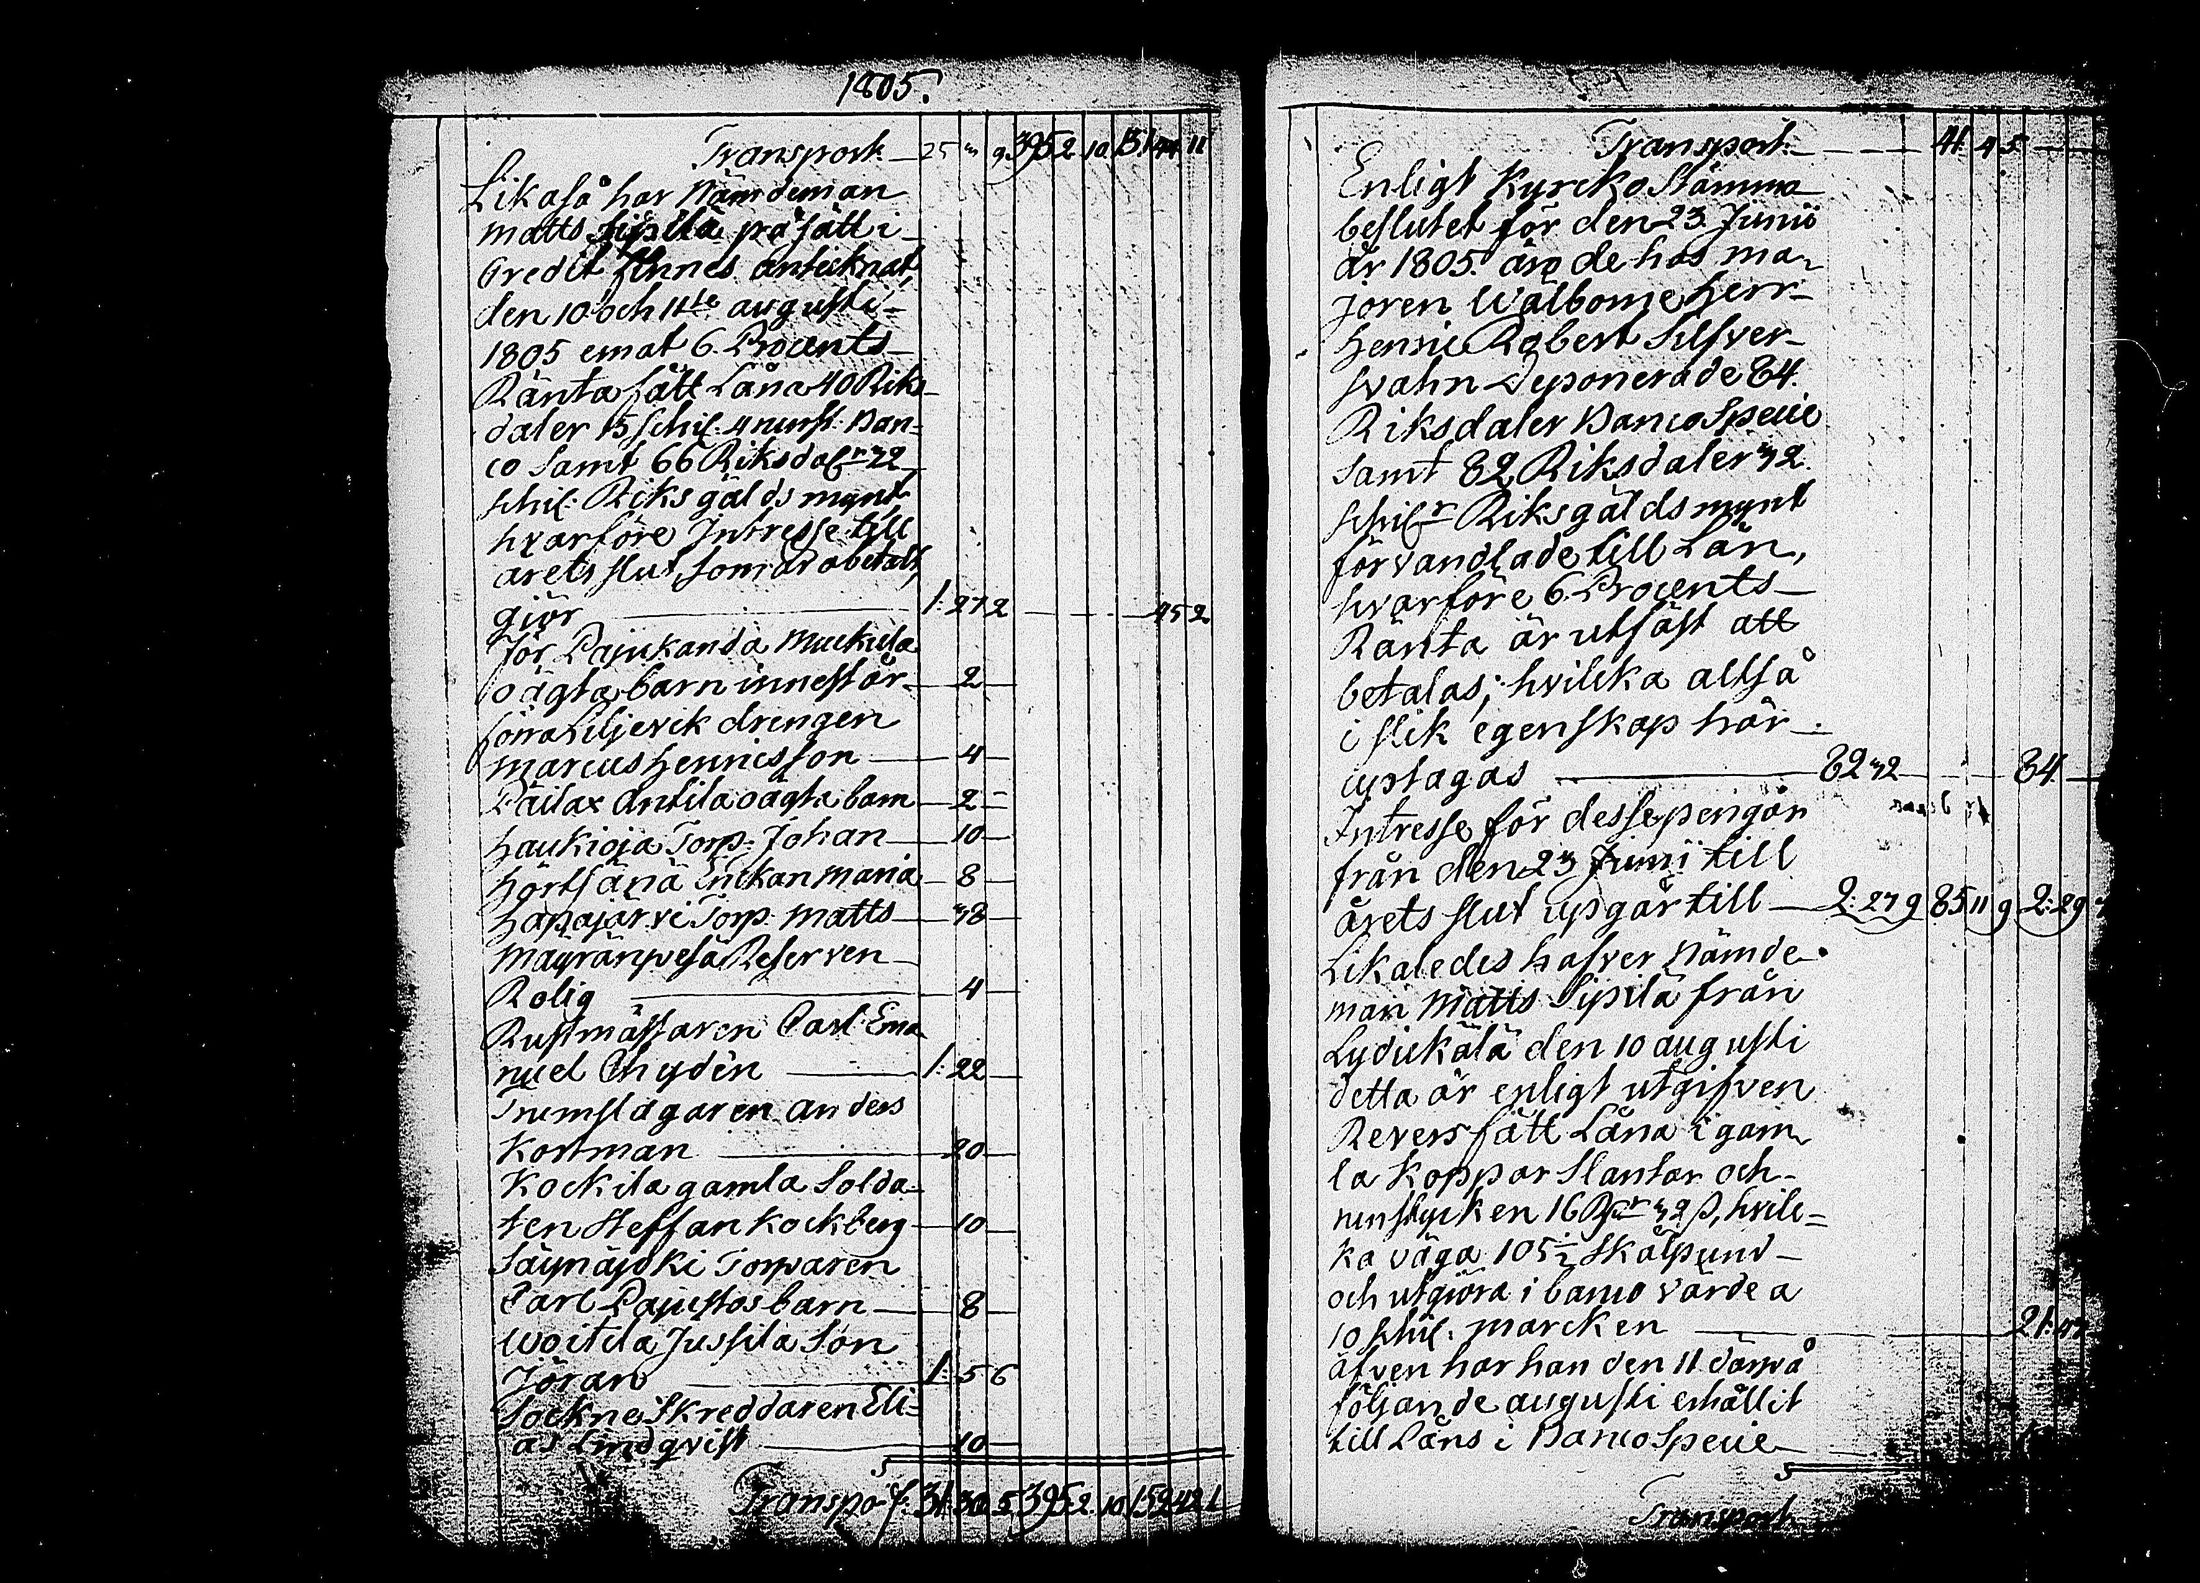 1805.
Transport. — 25 3 9 395 2 10 151 44 11
Likaså har Nämdeman
Matts Sipilä på sätt i
Credit finnes antecknat,
den 10 och 11te augusti
1805 emot 6 Procents
Ränta fått Låna 40 Riks-
daler 15 schil: 4 runst: Ban-
co samt 66 Riksdalr 32
schil: Riksgälds mynt
hvarföre Intresse till
årets slut, som är obetalt,
giör — 1: 27 2 — 45 2
För Pajukanda Muckula
oägta barn innestår — 2 —
Liljevik drengen
Marcus Hennicsson — 4 —
Päilax Antila oägta barn — 2 —
Haukioja Torp: Johan — 10 —
Hörtsänä Enckan Maria — 8 —
Hapajärvi Torp. Matts — 38 —
Mäyränpesä Reserven
Rolig — 4 —
Rustmästaren Carl Ema
nuel Chydén — 1: 22 —
Trumslagaren Anders
Kortman — 20 —
Kockila gamla Solda-
ten Steffan Kockberg — 10 —
Säynäjoki Torparen
Carl Pajustos barn — 8 —
Woitila Jussila Son
Jöran — 1: 5 6
Sockne Skreddaren Eli-
as Lindqvist — 10 —
Transport: 31 30 5 395 2 10 152 42 1
Transport. — 41 4 5 —
Enligt Kyrcko Stämmo
beslutet för den 23 Junii
år 1805. äro de hos ma-
joren Wälborne Herr
Henric Robert Silfver-
svahn Deponerade 84
Riksdaler Banco Specie
samt 82 Riksdaler 32
schilr Riksgälds mynt
förvandlade till Lån,
hvarföre 6 Procents
Ränta är utfäst att
betalas; hvilcka altså
i slik egenskap här
uptagas — 82 32 — 84 —
Intresse för desse pengar
från den 23 Junii till
årets slut upgår till — 2: 27 9 85 11 9 2: 29
Likaledes hafver Nämde-
man Matts Sipilä från
Lydickälä den 10 augusti
detta år enligt utgifven
Revers fått Låna i gam-
la Koppar Slantar och
runstycken 16 Rdr 32 ß, hvilc-
ka väga 105 1/2 Skålpund
och utgiöra i banco värde a
10 schil. marcken — 21: 47
äfven har han den 11 därpå
följande augusti erhållit
till Låns i Banco Specie
Transport